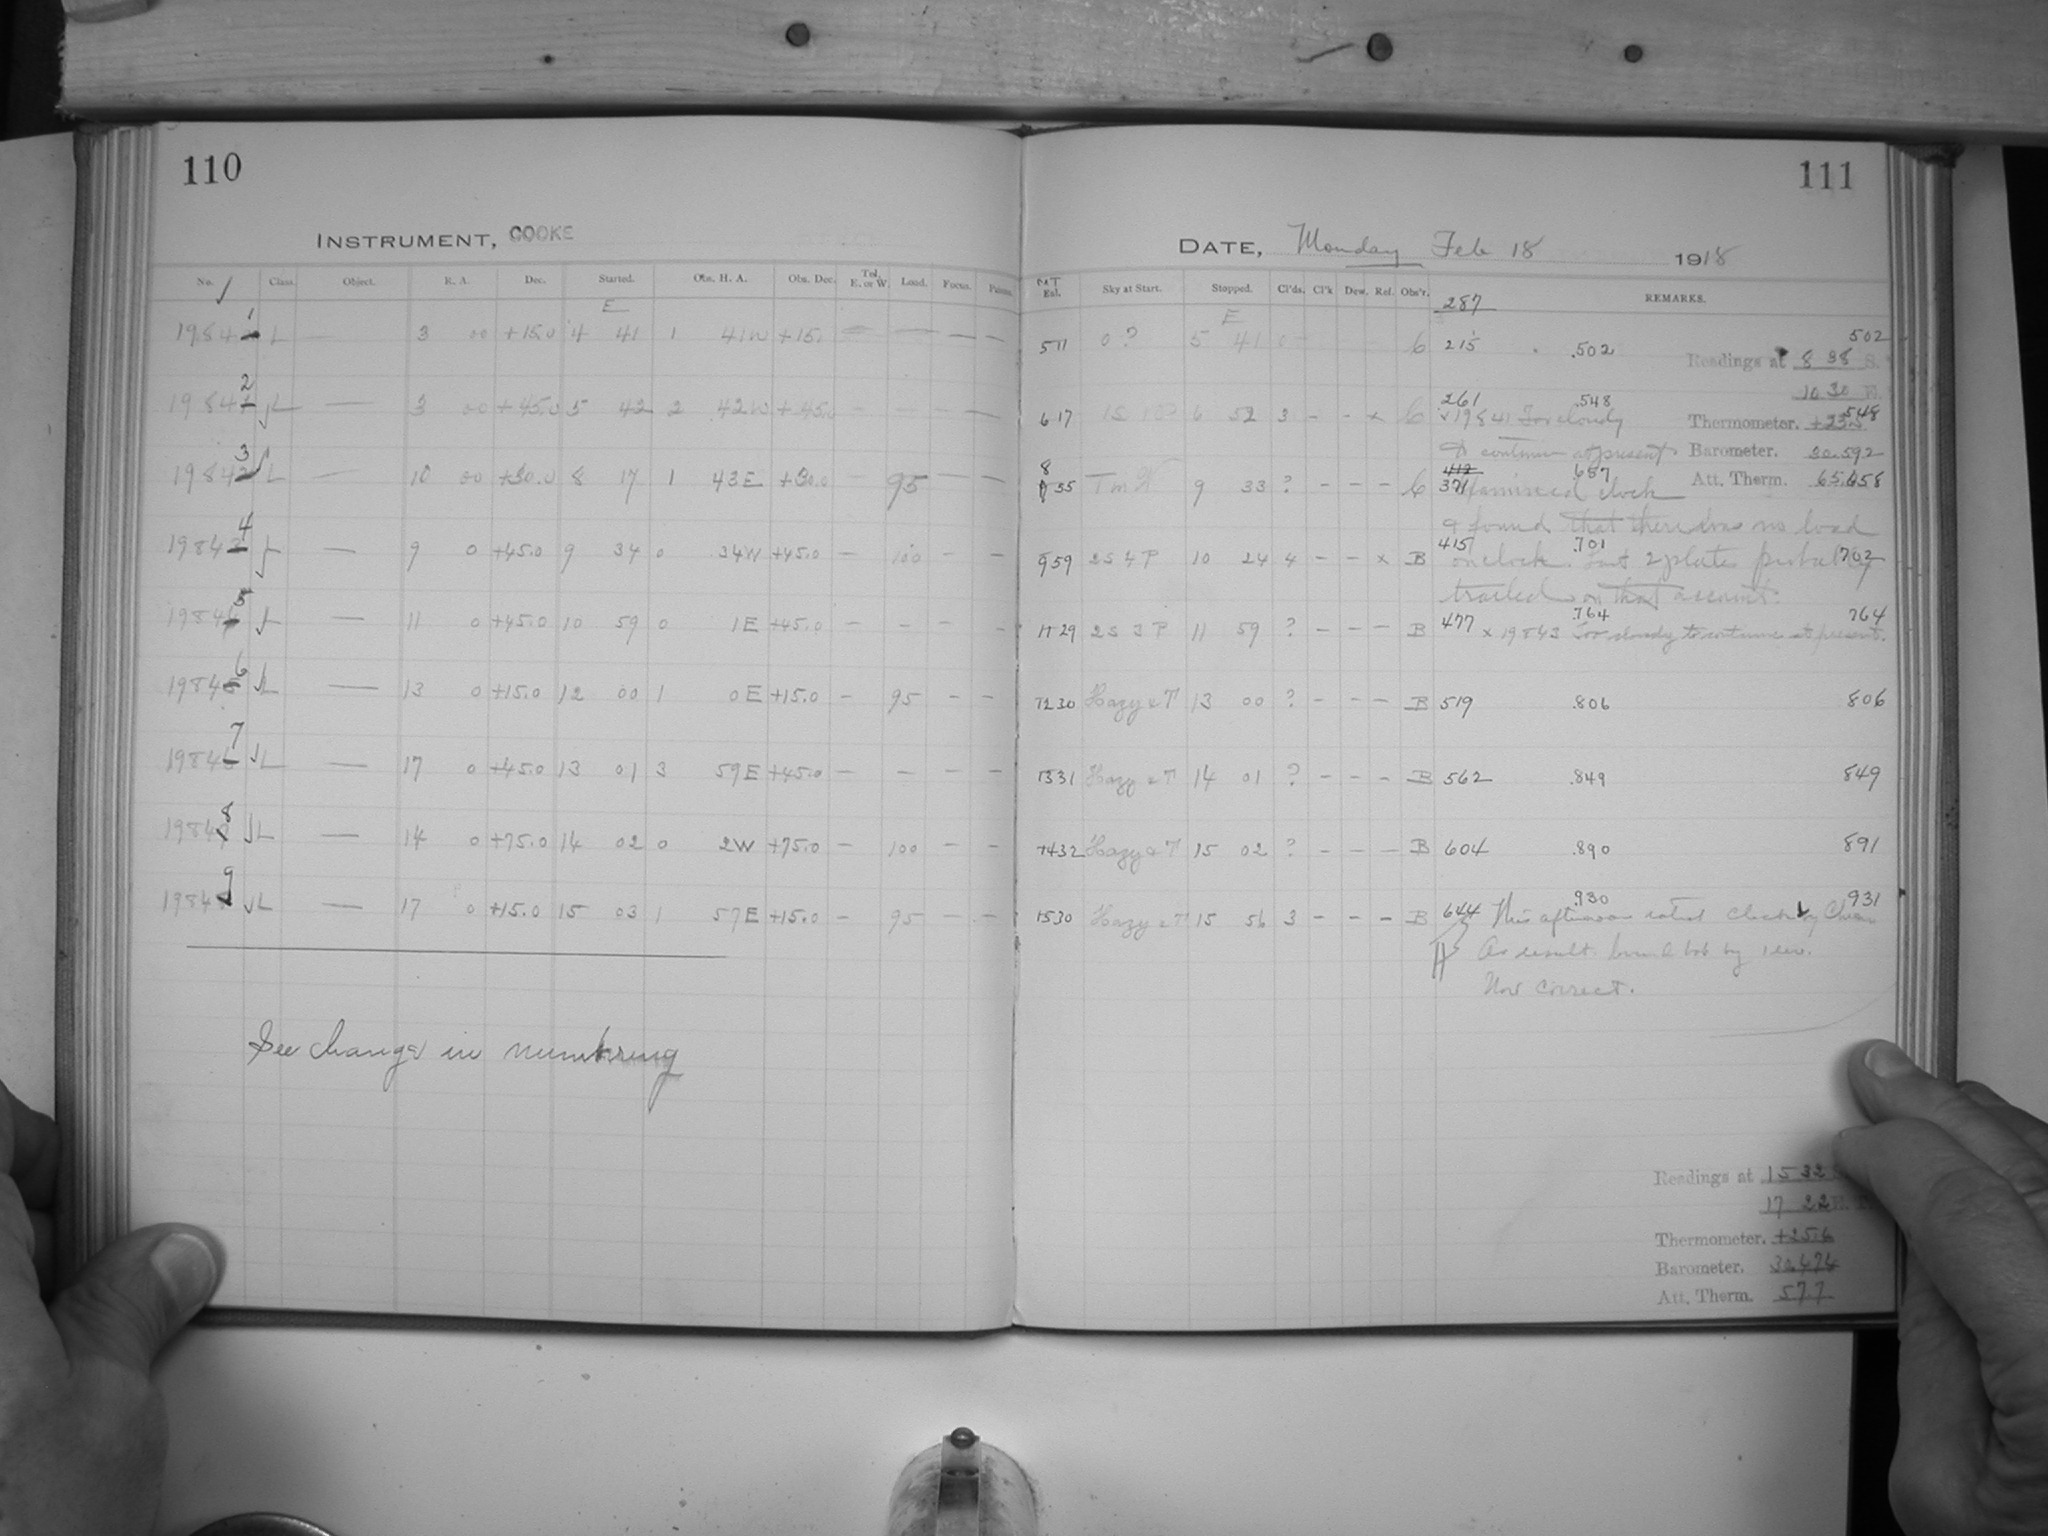 110
INSTRUMENT, COOKE
No. Class. Object. R. A. Dec. Started. Obs. H. A. Obs. Dec. Tel. E. or W. Load. Focus.
E
1984 1 L — 3 00 +15.0 4 41 1 41W +15. — — — —
1984 2 L — 3 00 +45.0 5 42 2 42W +45.0 —
1984 3 L — 10 00 +30.0 8 17 1 43E +30.0 — 95 — —
1984 4 L — 9 0 +45.0 9 34 0 34W +45.0 — 100 — —
1984 5 L — 11 0 +45.0 10 59 0 1E +45.0 — — — —
1984 6 L — 13 0 +15.0 12 00 1 0E +15.0 — 95 — —
1984 7 L — 17 0 +45.0 13 01 3 59E +45.0 — — — —
1984 8 L — 14 0 +75.0 14 02 0 2W +75.0 — 100 — —
1984 9 L — 17 0 +15.0 15 03 1 57E +15.0 — 95 — —
See change in numbering
111
DATE, Monday Feb 18 1918
Est. Sky at Start. Stopped. Cl'ds. Cl'k Dew. Ref. Obs'r. 287 REMARKS.
E
511 0? 5 41 0 — 6 215 .502 502
Readings at 8 38 S.
10 30 E.
617 6 52 3 – – x 6 261 .548 548
x19841 Too cloudy
Thermometer. +23.5
to continue at present
Barometer. 30.592
8 55 9 33 ? – – – 6 412 371 .657 658
Examined clock
Att. Therm. 65.
& found that there was no load
959 2S 4P 10 24 4 – – x B 415 .701 702
on clock. Last 2 plates probably
trailed on that account.
1129 2S 3P 11 59 ? – – – B 477 .764 764
x 19843 Too cloudy to continue at present.
1230 Hazy & T 13 00 ? – – – B 519 .806 806
1331 Hazy & T 14 01 ? – – – B 562 .849 849
1432 Hazy & T 15 02 ? – – – B 604 .890 891
1530 Hazy & T 15 56 3 – – – B 644 .930 931
This afternoon rated Clock by
As result bob by 1 rev.
Now correct.
Readings at 15 32
17 22
Thermometer. +25.6
Barometer. 30.474
Att. Therm. 57.7